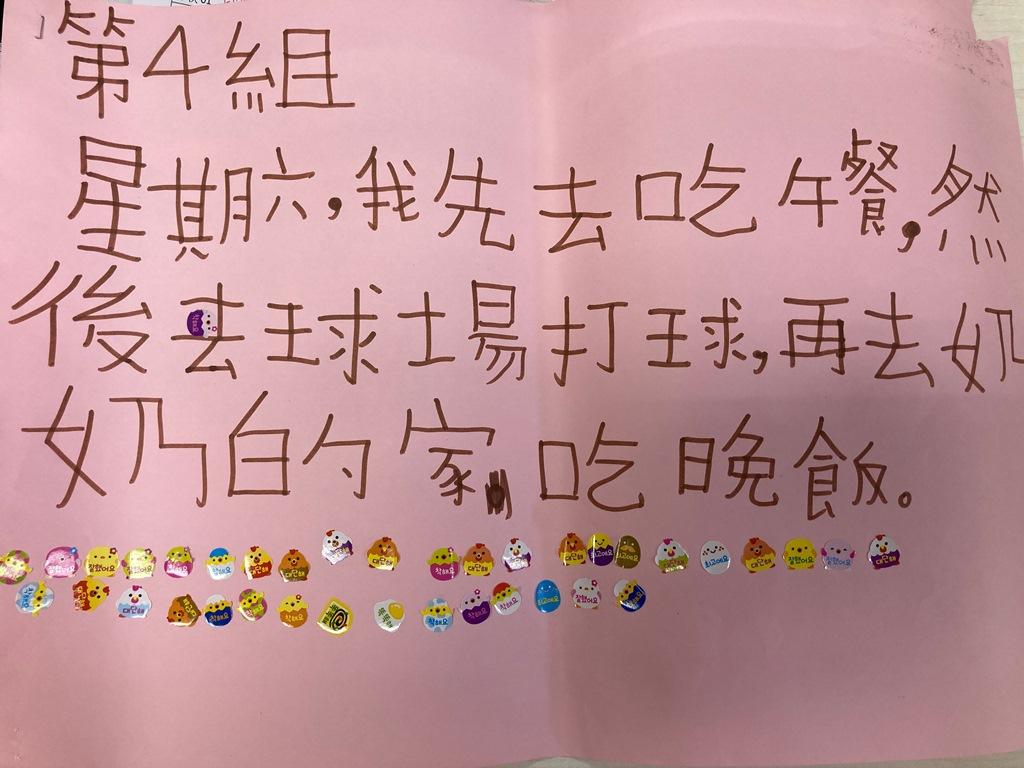 第4組
星期六,我先去吃午餐,然
後去球場打球,再去奶
奶的家吃晚飯。